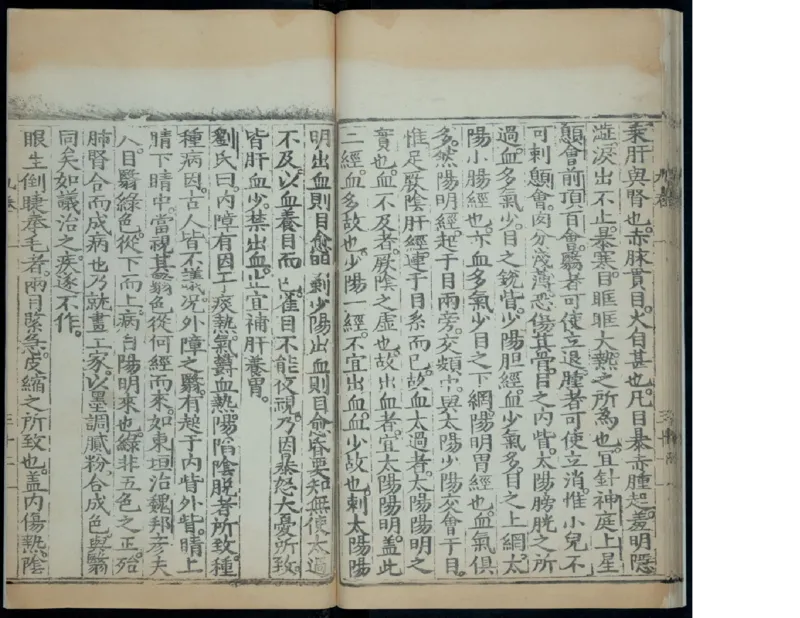 乘肝與腎也。赤脉貫目。火自甚也。凡目暴赤腫起。羞明隱
澁。淚出不止。暴寒目眶眶大熱。之所為也。宜針神庭上星
顖會前頂百會。翳者可使立退。腫者可使立消。惟小兒不
可刺顖會。肉分淺薄。恐傷其骨。目之內眥。太陽膀胱之所
過。血多氣少。目之銳眥。少陽胆經。血少氣多。目之上網。太
陽小腸經也。亦血多氣少。目之下網。陽明胃經也。血氣俱
多。然陽明經起于目兩旁。交頞中。與太陽少陽交會于目。
惟足厥陰肝經。連于目系而已。故血太過者。太陽陽明之
實也。血不及者。厥陰之虛也。故出血者。宜太陽陽明。蓋此
二經。血多故也。少陽一經。不宜出血。血少故也。刺太陽陽
明出血則目愈明。刺少陽出血則目愈昏。要知無使太過
不及。以血養目而已。雀目不能夜視。乃因暴怒大憂所致。
皆肝血少。禁出血。止宜補肝養胃。
劉氏曰。內障有因于痰熱。氣鬱血熱。陽陷陰脫者所致。種
種病因。古人皆不議。况外障之翳。有起于內眥外眥。睛上
睛下睛中。當視其翳色從何經而來。如東垣治魏邦彥夫
人目翳綠色。從下而上。病自陽明來也。綠非五色之正。殆
肺腎合而成病也。乃就畫工家。以墨調膩粉。合成色。與翳
同矣。如議治之。疾遂不作。
眼生倒睫拳毛者。兩目緊急。皮縮之所致也。蓋內傷熱。陰